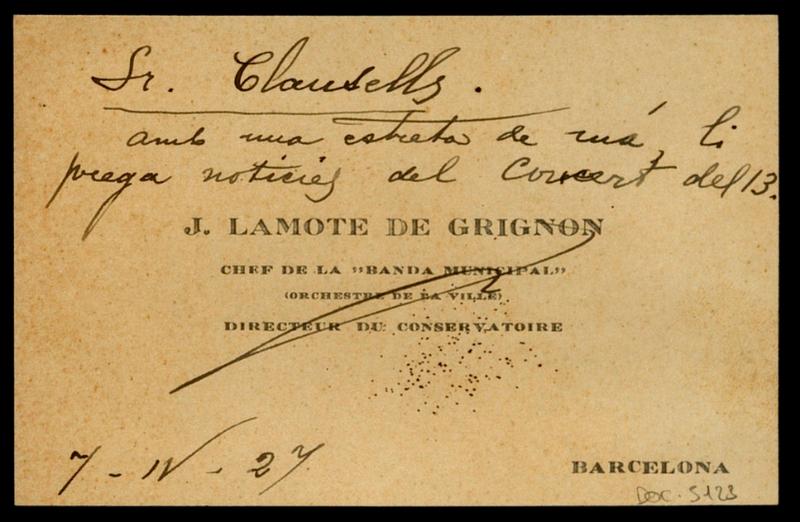 Sr. Clausells.
amb una estreta de má, li
prega noticies del Concert del 13.
J. LAMOTE DE GRIGNON
CHEF DE LA "BANDA MUNICIPAL"
(ORCHESTRE DE LA VILLE)
DIRECTEUR DU CONSERVATOIRE
7 - IV - 27
BARCELONA
DOC. 5123